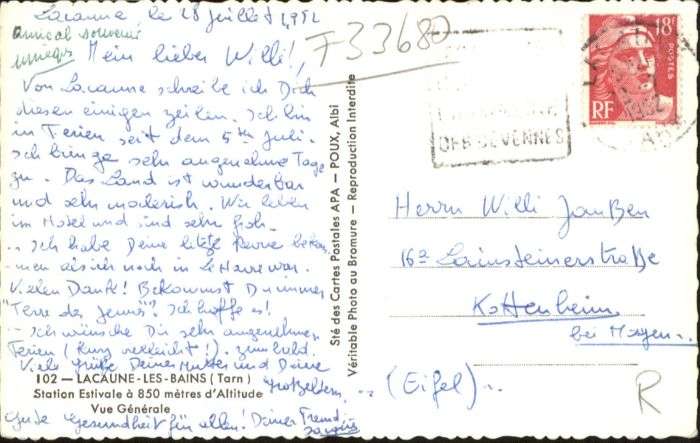 Lacaune, le 28 juillet 1952
amical souvenir
Mein lieber Willi!,
F33680
Von Lacaune schreibe ich Dich
diesen einigen zeilen. Ich bin
in Ferien seit dem 5ten Juli.
Ich bringe sehr angenehme Tage
zu. Das Land ist wunderbar
und sehr malerisch. Wir leben
im Hotel und sind sehr froh.
.. Ich habe Deine letzte Revue bekom
-men als ich noch in Le Havre war.
Vielen Dank! Bekommst Du immer
"Terre des Jeunes"? Ich hoffe es!
.. Ich wünsche Dir sehr angenehmen
Ferien (Kurz vielleicht!). zum bald.
Viele Grüße Deiner Mutter und Deine
Großeltern.
102 — LACAUNE-LES-BAINS (Tarn)
Station Estivale à 850 mètres d'Altitude
Vue Générale
Gute Gesundheit für allen! Deiner Freund
Sté des Cartes Postales APA — POUX, Albi
Véritable Photo au Bromure — Reproduction Interdite
DES CEVENNES
18F
POSTES
RF
1952
Herrn Willi Janßen
16a Lainsteinerstraße
Kottenheim
bei Mayen.
(Eifel)..
R